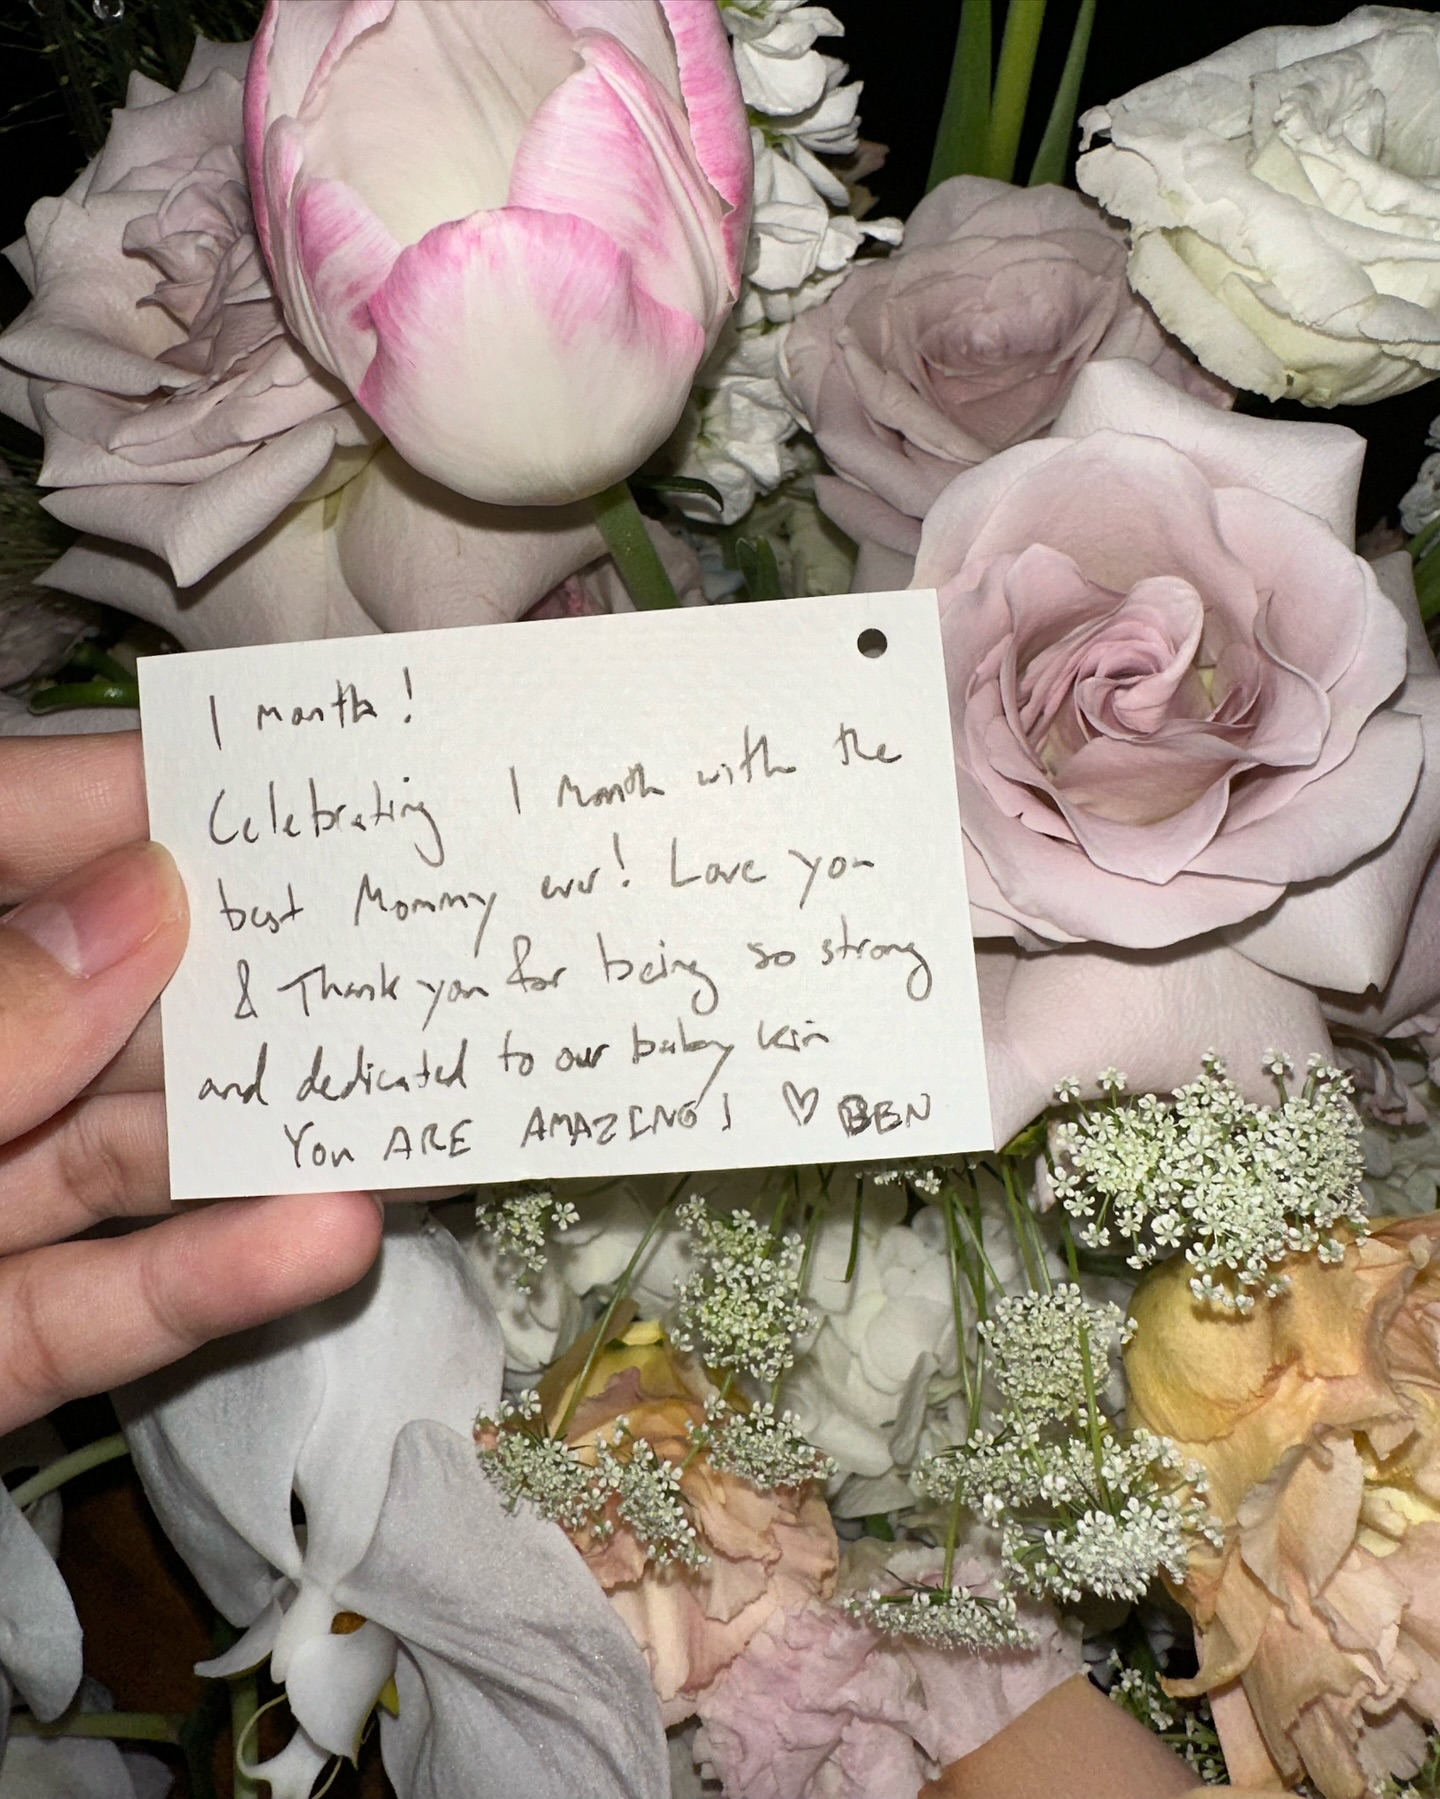 1 month!
Celebrating 1 month with the
best Mommy ever! Love you
& Thank you for being so strong
and dedicated to our baby
YOU ARE AMAZING! ♡ BEN